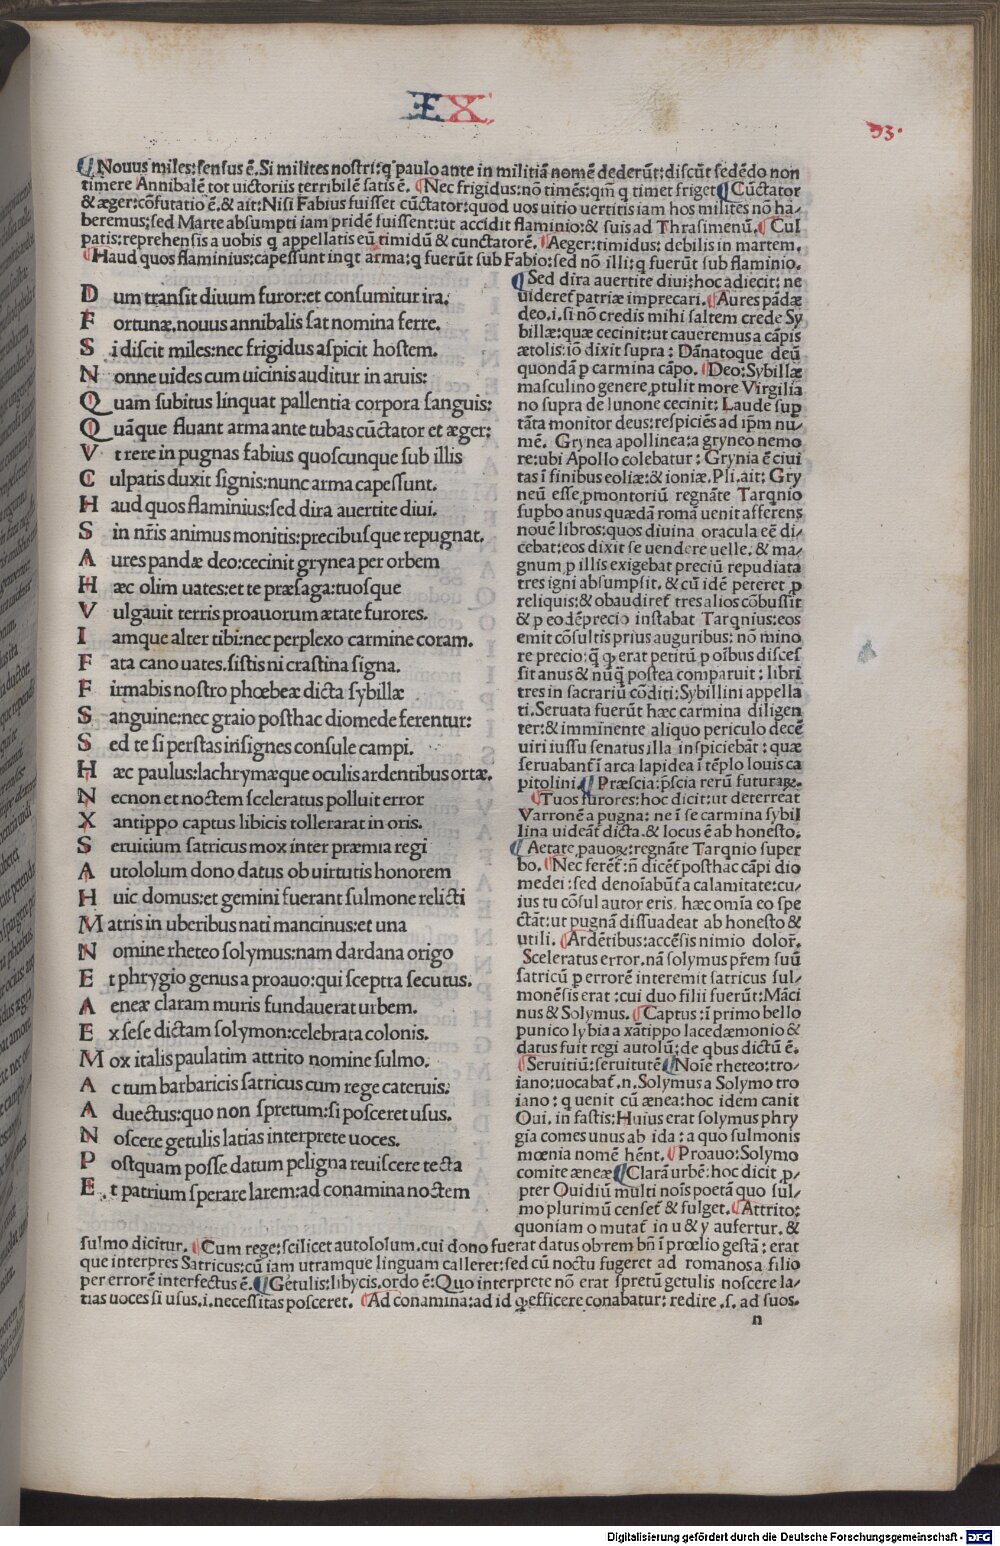 ÆX
93.
Nouus miles:sensus ē.Si milites nostri:q̇ paulo ante in militiā nomē dederūt:discūt sedēdo non
timere Annibalē tot uictoriis terribilē satis ē. Nec frigidus:nō timēs:qm̄ q timet friget Cūctator
& æger:cōfutatio ē.& ait:Nisi Fabius fuisset cūctator:quod uos uitio uertitis iam hos milites nō ha/
beremus:sed Marte absumpti iam pridē fuissent:ut accidit flaminio:& suis ad Thrasimenū. Cul
patis:reprehensis a uobis q appellatis eū timidū & cunctatorē. Aeger:timidus: debilis in martem.
Haud quos flaminius:capessunt inqt arma:q fuerūt sub Fabio:sed nō illi:q fuerūt sub flaminio.
D um transit diuum furor:et consumitur ira.
F ortunæ.nouus annibalis sat nomina ferre.
S i discit miles:nec frigidus aspicit hostem.
N onne uides cum uicinis auditur in aruis:
Q uam subitus linquat pallentia corpora sanguis:
Q uāque fluant arma ante tubas cūctator et æger:
V t rere in pugnas fabius quoscunque sub illis
C ulpatis duxit signis:nunc arma capessunt.
H aud quos flaminius:sed dira auertite diui.
S in nr̄is animus monitis:precibusque repugnat.
A ures pandæ deo:cecinit grynea per orbem
H æc olim uates:et te præsaga:tuosque
V ulgauit terris proauorum ætate furores.
I amque alter tibi:nec perplexo carmine coram.
F ata cano uates.sistis ni crastina signa.
F irmabis nostro phœbeæ dicta sybillæ
S anguine:nec graio posthac diomede ferentur:
S ed te si perstas insignes consule campi.
H æc paulus:lachrymæque oculis ardentibus ortæ.
N ecnon et noctem sceleratus polluit error
X antippo captus libicis tollerarat in oris.
S eruitium satricus mox inter præmia regi
A utololum dono datus ob uirtutis honorem
H uic domus:et gemini fuerant sulmone relicti
M atris in uberibus nati mancinus:et una
N omine rheteo solymus:nam dardana origo
E t phrygio genus a proauo:qui sceptra secutus.
A eneæ claram muris fundauerat urbem.
E x sese dictam solymon:celebrata colonis.
M ox italis paulatim attrito nomine sulmo.
A c tum barbaricis satricus cum rege cateruis.
A duectus:quo non spretum:si posceret usus.
N oscere getulis latias interprete uoces.
P ostquam posse datum peligna reuiscere tecta
E t patrium sperare larem:ad conamina noctem
Sed dira auertite diui:hoc adiecit: ne
uideret̄ patriæ imprecari. Aures pādæ
deo.i.si nō credis mihi saltem crede Sy
billæ:quæ cecinit:ut caueremus a cāpis
ætolis:iō dixit supra: Dānatoque deū
quondā p carmina cāpo. Deo:Sybillæ
masculino genere,ptulit more Virgilia
no supra de Iunone cecinit: Laude sup
tāta monitor deus:respiciēs ad ipm̄ nu/
mē. Grynea apollinea:a gryneo nemo
re:ubi Apollo colebatur: Grynia ē ciui
tas ī finibus eoliæ:& ioniæ.Pli.ait: Gry
neū esse,pmontoriū regnāte Tarqnio
supbo anus quædā romā uenit afferens
nouē libros:quos diuina oracula eē di/
cebat:eos dixit se uendere uelle. & ma/
gnum p illis exigebat preciū repudiata
tres igni absumpsit. & cū idē peteret p
reliquis:& obaudiret̄ tres alios cōbussit
& p eodē precio instabat Tarqnius:eos
emit cōsultis prius auguribus: nō mino
re precio:q̄ q̇ erat petitū p oībus disces
sit anus & nūq̄ postea comparuit: libri
tres in sacrariū cōditi:Sybillini appella
ti.Seruata fuerūt hæc carmina diligen
ter:& imminente aliquo periculo decē
uiri iussu senatus illa inspiciebāt: quæ
seruabant̄ ī arca lapidea ī tēplo Iouis ca
pitolini. Præscia:p̄scia rerū futuraꝝ.
Tuos furores:hoc dicit:ut deterreat
Varronē a pugna: ne ī se carmina sybil
lina uideāt dicta.& locus ē ab honesto.
Aetate,pauoꝝ:regnāte Tarqnio super
bo. Nec feret̄:n̄ dicet̄ posthac cāpi dio
medei:sed denoīabunt̄ a calamitate:cu/
ius tu cōsul autor eris. hæc omīa eo spe
ctāt:ut pugnā dissuadeat ab honesto &
utili. Ardētibus:accēsis nimio dolor̄.
Sceleratus error.nā solymus pr̄em suū
satricū p errorē interemit satricus sul/
monēsis erat:cui duo filii fuerūt:Māci
nus & Solymus. Captus:ī primo bello
punico lybia a xātippo lacedæmonio &
datus fuit regi autolū:de qbus dictū ē.
Seruitiū:seruitutē Noīe rheteo:tro/
iano:uocabat̄.n.Solymus a Solymo tro
iano:q uenit cū ænea:hoc idem canit
Oui.in fastis:Huius erat solymus phry
gia comes unus ab ida:a quo sulmonis
mœnia nomē hēnt. Proauo:Solymo
comite æneæ Clarā urbē:hoc dicit p/
pter Ouidiū multi noīs poetā quo sul/
mo plurimū censet̄ & fulget. Attrito:
quoniam o mutat̄ in u & y aufertur.&
sulmo dicitur. Cum rege:scilicet autololum.cui dono fuerat datus ob rem bn̄ ī prœlio gestā:erat
que interpres Satricus:cū iam utramque linguam calleret:sed cū noctu fugeret ad romanos a filio
per errorē interfectus ē. Getulis:libycis.ordo ē:Quo interprete nō erat spretū getulis noscere la/
tias uoces si usus.i.necessitas posceret. Ad conamina:ad id q̇ efficere conabatur:redire.s.ad suos.
n
Digitalisierung gefördert durch die Deutsche Forschungsgemeinschaft - DFG